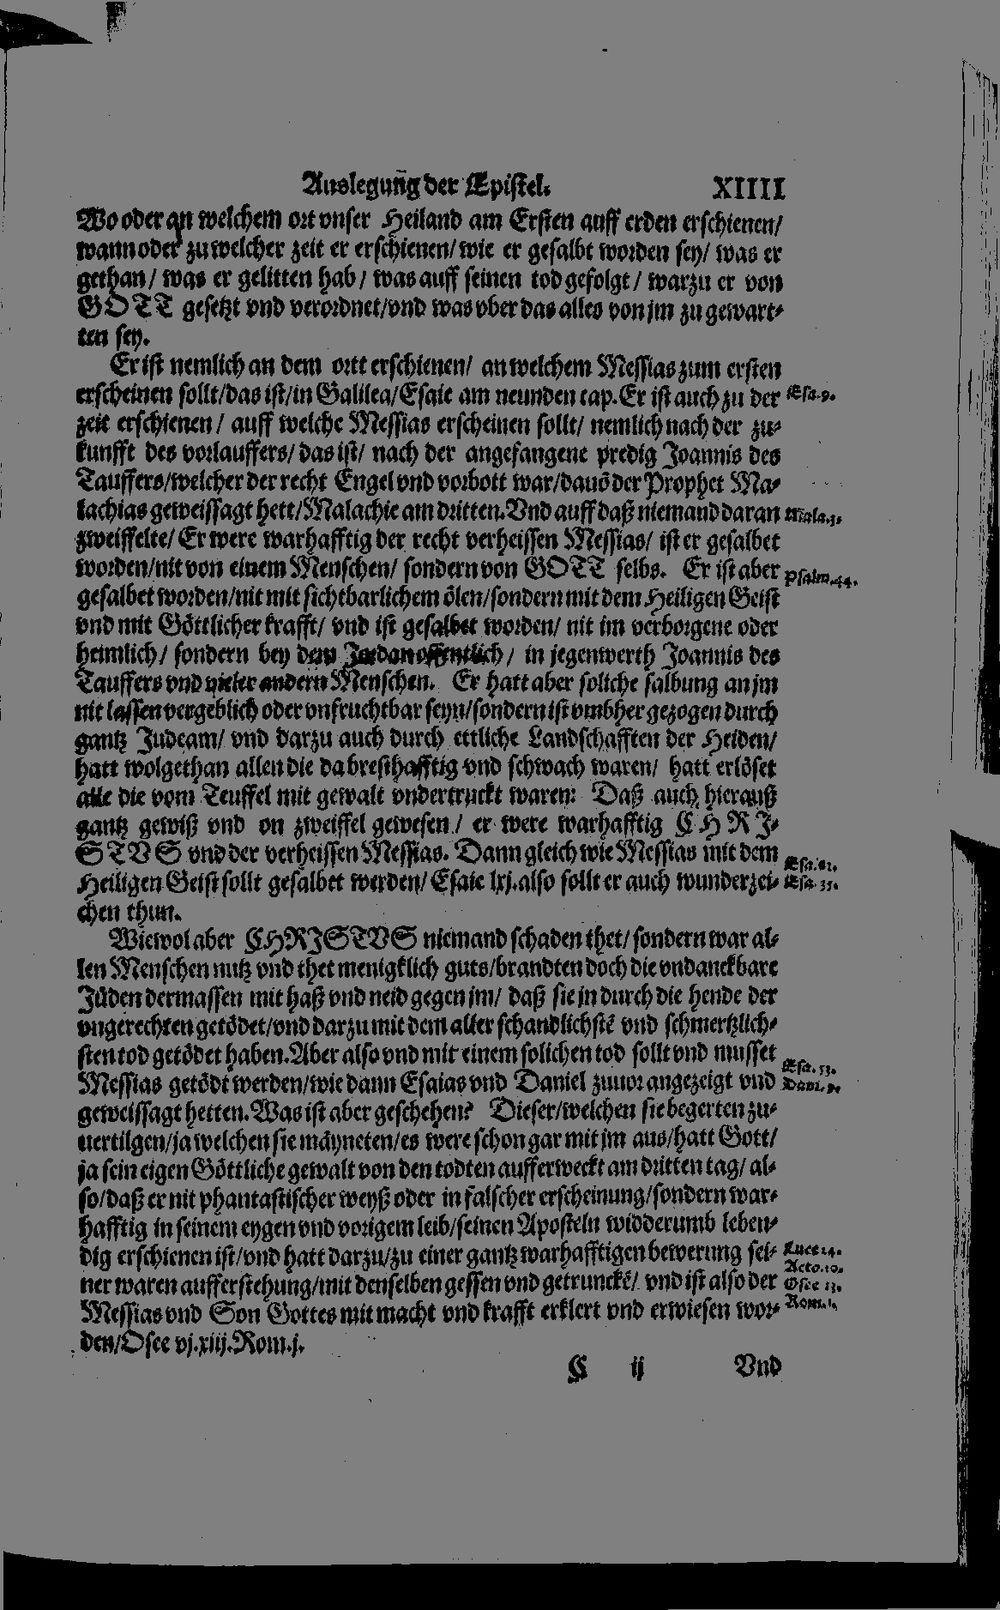 Auslegung der Epistel. XIIII
Wo oder an welchem ort vnser Heiland am Ersten auff erden erschienen/
wann oder zu welcher zeit er erschienen/ wie er gesalbt worden sey/ was er
gethan/ was er gelitten hab/ was auff seinen tod gefolgt/ warzu er von
GOTT gesetzt vnd verordnet/ vnd was vber das alles von jm zu gewart-
ten sey.
Er ist nemlich an dem ortt erschienen/ an welchem Messias zum ersten
erscheinen sollt/ das ist/ in Galilea/ Esaie am neunden cap. Er ist auch zu der
Esa.9.
zeit erschienen/ auff welche Messias erscheinen sollt/ nemlich nach der zu-
kunfft des vorlauffers/ das ist/ nach der angefangene predig Joannis des
Tauffers/ welcher der recht Engel vnd vorbott war/ dauõ der Prophet Ma-
lachias geweissagt hett/ Malachie am dritten. Vnd auff daß niemand daran
Mala.3.
zweiffelte/ Er were warhafftig der recht verheissen Messias/ ist er gesalbet
worden/ nit von einem Menschen/ sondern von GOTT selbs. Er ist aber
Psalm.44.
gesalbet worden/ nit mit sichtbarlichem ölen/ sondern mit dem Heiligen Geist
vnd mit Göttlicher krafft/ vnd ist gesalbet worden/ nit im verborgene oder
heimlich/ sondern bey dem Jordan offentlich/ in jegenwerth Joannis des
Tauffers vnd vieler andern Menschen. Er hatt aber soliche salbung an jm
nit lassen vergeblich oder vnfruchtbar seyn/ sondern ist vmbher gezogen durch
gantz Judeam/ vnd darzu auch durch ettliche Landschafften der Heiden/
hatt wolgethan allen die da bresthafftig vnd schwach waren/ hatt erlöset
alle die vom Teuffel mit gewalt vndertruckt waren: Daß auch hierauß
gantz gewiß vnd on zweiffel gewesen/ er were warhafftig CHRI-
STVS vnd der verheissen Messias. Dann gleich wie Messias mit dem
Esa.61.
Heiligen Geist sollt gesalbet werden/ Esaie lxj. also sollt er auch wunderzei-
Esa.35.
chen thun.
Wiewol aber CHRISTVS niemand schaden thet/ sondern war al-
len Menschen nutz vnd thet menigklich guts/ brandten doch die vndanckbare
Jüden dermassen mit haß vnd neid gegen jm/ daß sie jn durch die hende der
vngerechten getödet/ vnd darzu mit dem aller schandlichstẽ vnd schmertzlich-
sten tod getödet haben. Aber also vnd mit einem solichen tod sollt vnd musset
Esa.53.
Messias getödt werden/ wie dann Esaias vnd Daniel zuuor angezeigt vnd
Dani.9.
geweissagt hetten. Was ist aber geschehen? Dieser/ welchen sie begerten zu-
uertilgen/ ja welchen sie mäyneten/ es were schon gar mit jm aus/ hatt Gott/
ja sein eigen Göttliche gewalt von den todten aufferweckt am dritten tag/ al-
so/ daß er nit phantastischer weyß oder in falscher erscheinung/ sondern war-
hafftig in seinem eygen vnd vorigem leib/ seinen Aposteln widderumb leben-
dig erschienen ist/ vnd hatt darzu/ zu einer gantz warhafftigen bewerung sei-
Luce 24.
Acto.10.
ner waren aufferstehung/ mit denselben gessen vnd getrunckẽ/ vnd ist also der
Osee 13.
Messias vnd Son Gottes mit macht vnd krafft erklert vnd erwiesen wor-
Rom.1.
den/ Osee vj. xiij. Rom. j.
C ij Vnd